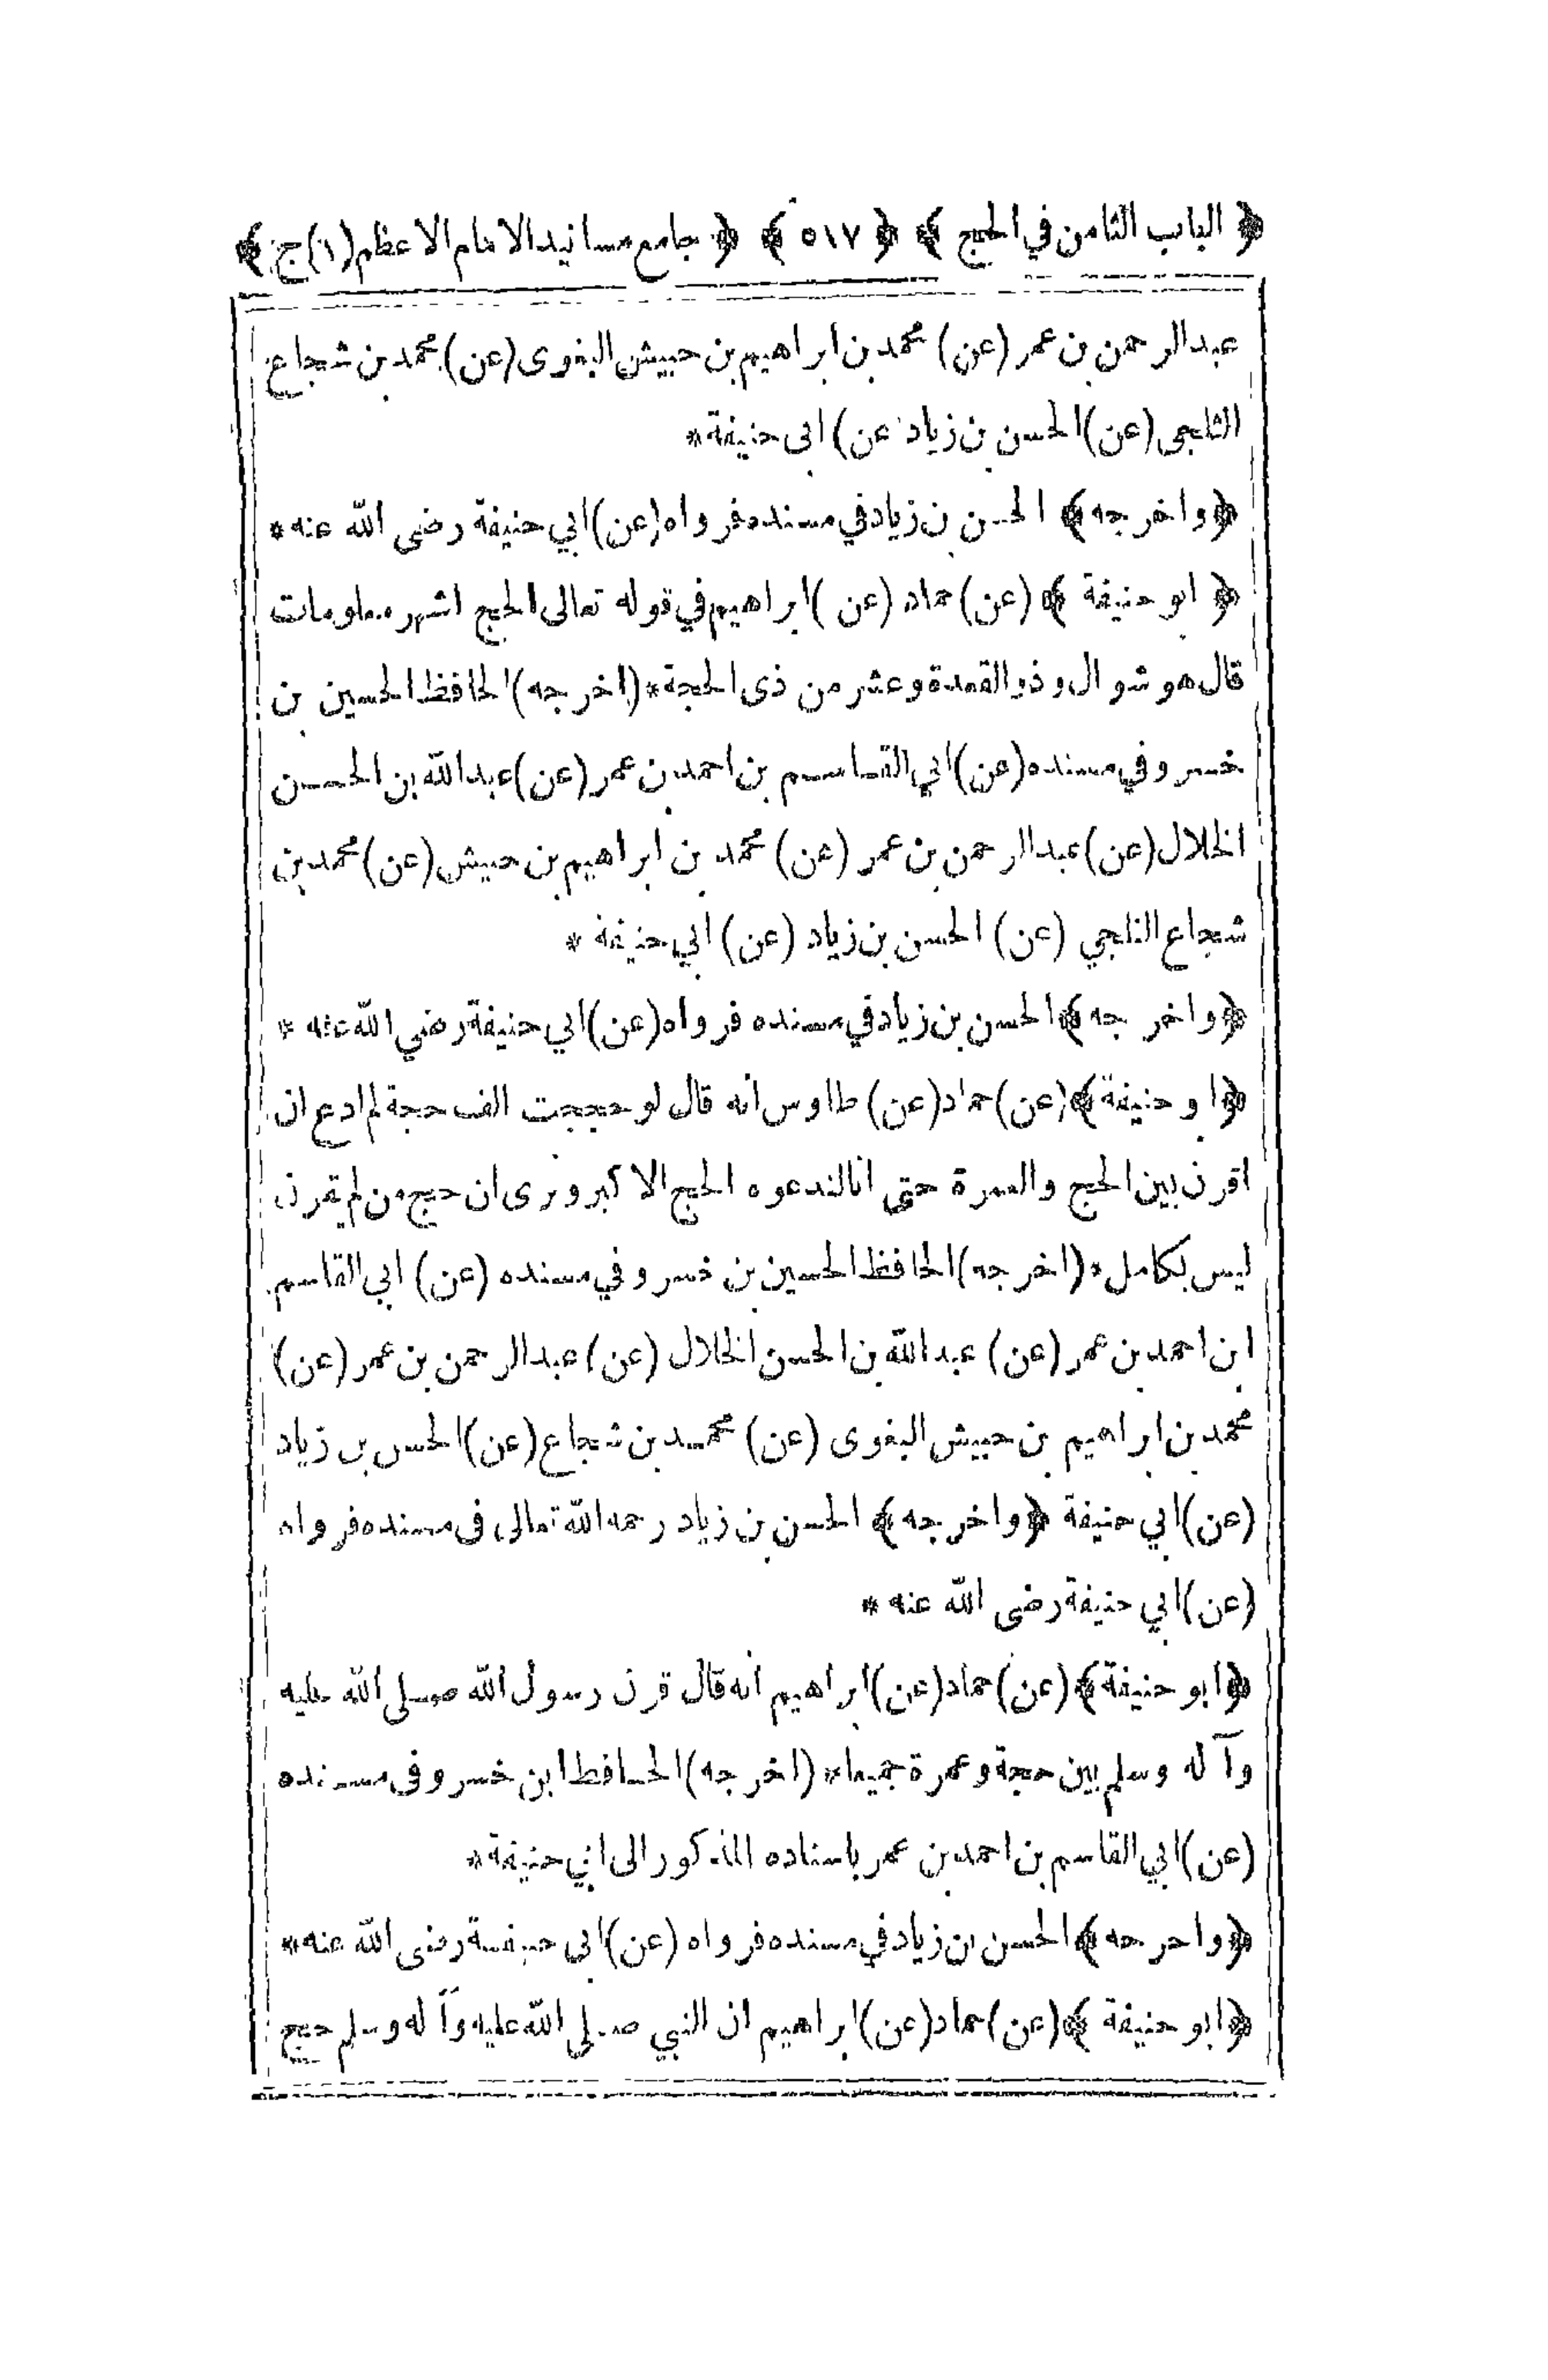 ﴿ الباب الثامن في الحج ﴾ ﴿ ٥١٧ ﴾ ﴿ جامع مسانيد الامام الاعظم (١) ج ﴾
عبد الرحمن بن عمر (عن) محمد بن ابراهيم بن حبيش البغوى (عن) محمد بن شجاع
الثلجى (عن) الحسن بن زياد عن) ابى حنيفة *
﴿ واخرجه ﴾ الحسن بن زياد في مسنده فرواه (عن) ابي حنيفة رضى الله عنه *
﴿ ابو حنيفة ﴾ (عن) حماد (عن) ابراهيم في قوله تعالى الحج اشهر معلومات
قال هو شوال وذو القعدة وعشر من ذى الحجة * (اخرجه) الحافظ الحسين بن
خسرو في مسنده (عن) ابي القاسم بن احمد بن عمر (عن) عبد الله بن الحسن
الخلال (عن) عبد الرحمن بن عمر (عن) محمد بن ابراهيم بن حبيش (عن) محمد بن
شجاع الثلجي (عن) الحسن بن زياد (عن) ابي حنيفة *
﴿ واخرجه ﴾ الحسن بن زياد في مسنده فرواه (عن) ابي حنيفة رضي الله عنه *
﴿ ابو حنيفة ﴾ (عن) حماد (عن) طاوس انه قال لو حججت الف حجة لم ادع ان
اقرن بين الحج والعمرة حتى انا لندعوه الحج الاكبر ويرى ان حج من لم يقرن
ليس بكامل * (اخرجه) الحافظ الحسين بن خسرو في مسنده (عن) ابي القاسم
ابن احمد بن عمر (عن) عبد الله بن الحسن الخلال (عن) عبد الرحمن بن عمر (عن)
محمد بن ابراهيم بن حبيش البغوى (عن) محمد بن شجاع (عن) الحسن بن زياد
(عن) ابي حنيفة ﴿ واخرجه ﴾ الحسن بن زياد رحمه الله تعالى فى مسنده فرواه
(عن) ابي حنيفة رضى الله عنه *
﴿ ابو حنيفة ﴾ (عن) حماد (عن) ابراهيم انه قال قرن رسول الله صلى الله عليه
وآله وسلم بين حجة وعمرة جميعا * (اخرجه) الحافظ ابن خسرو فى مسنده
(عن) ابي القاسم بن احمد بن عمر باسناده المذكور الى ابي حنيفة *
﴿ واخرجه ﴾ الحسن بن زياد في مسنده فرواه (عن) ابى حنيفة رضى الله عنه *
﴿ ابو حنيفة ﴾ (عن) حماد (عن) ابراهيم ان النبي صلى الله عليه وآله وسلم حج